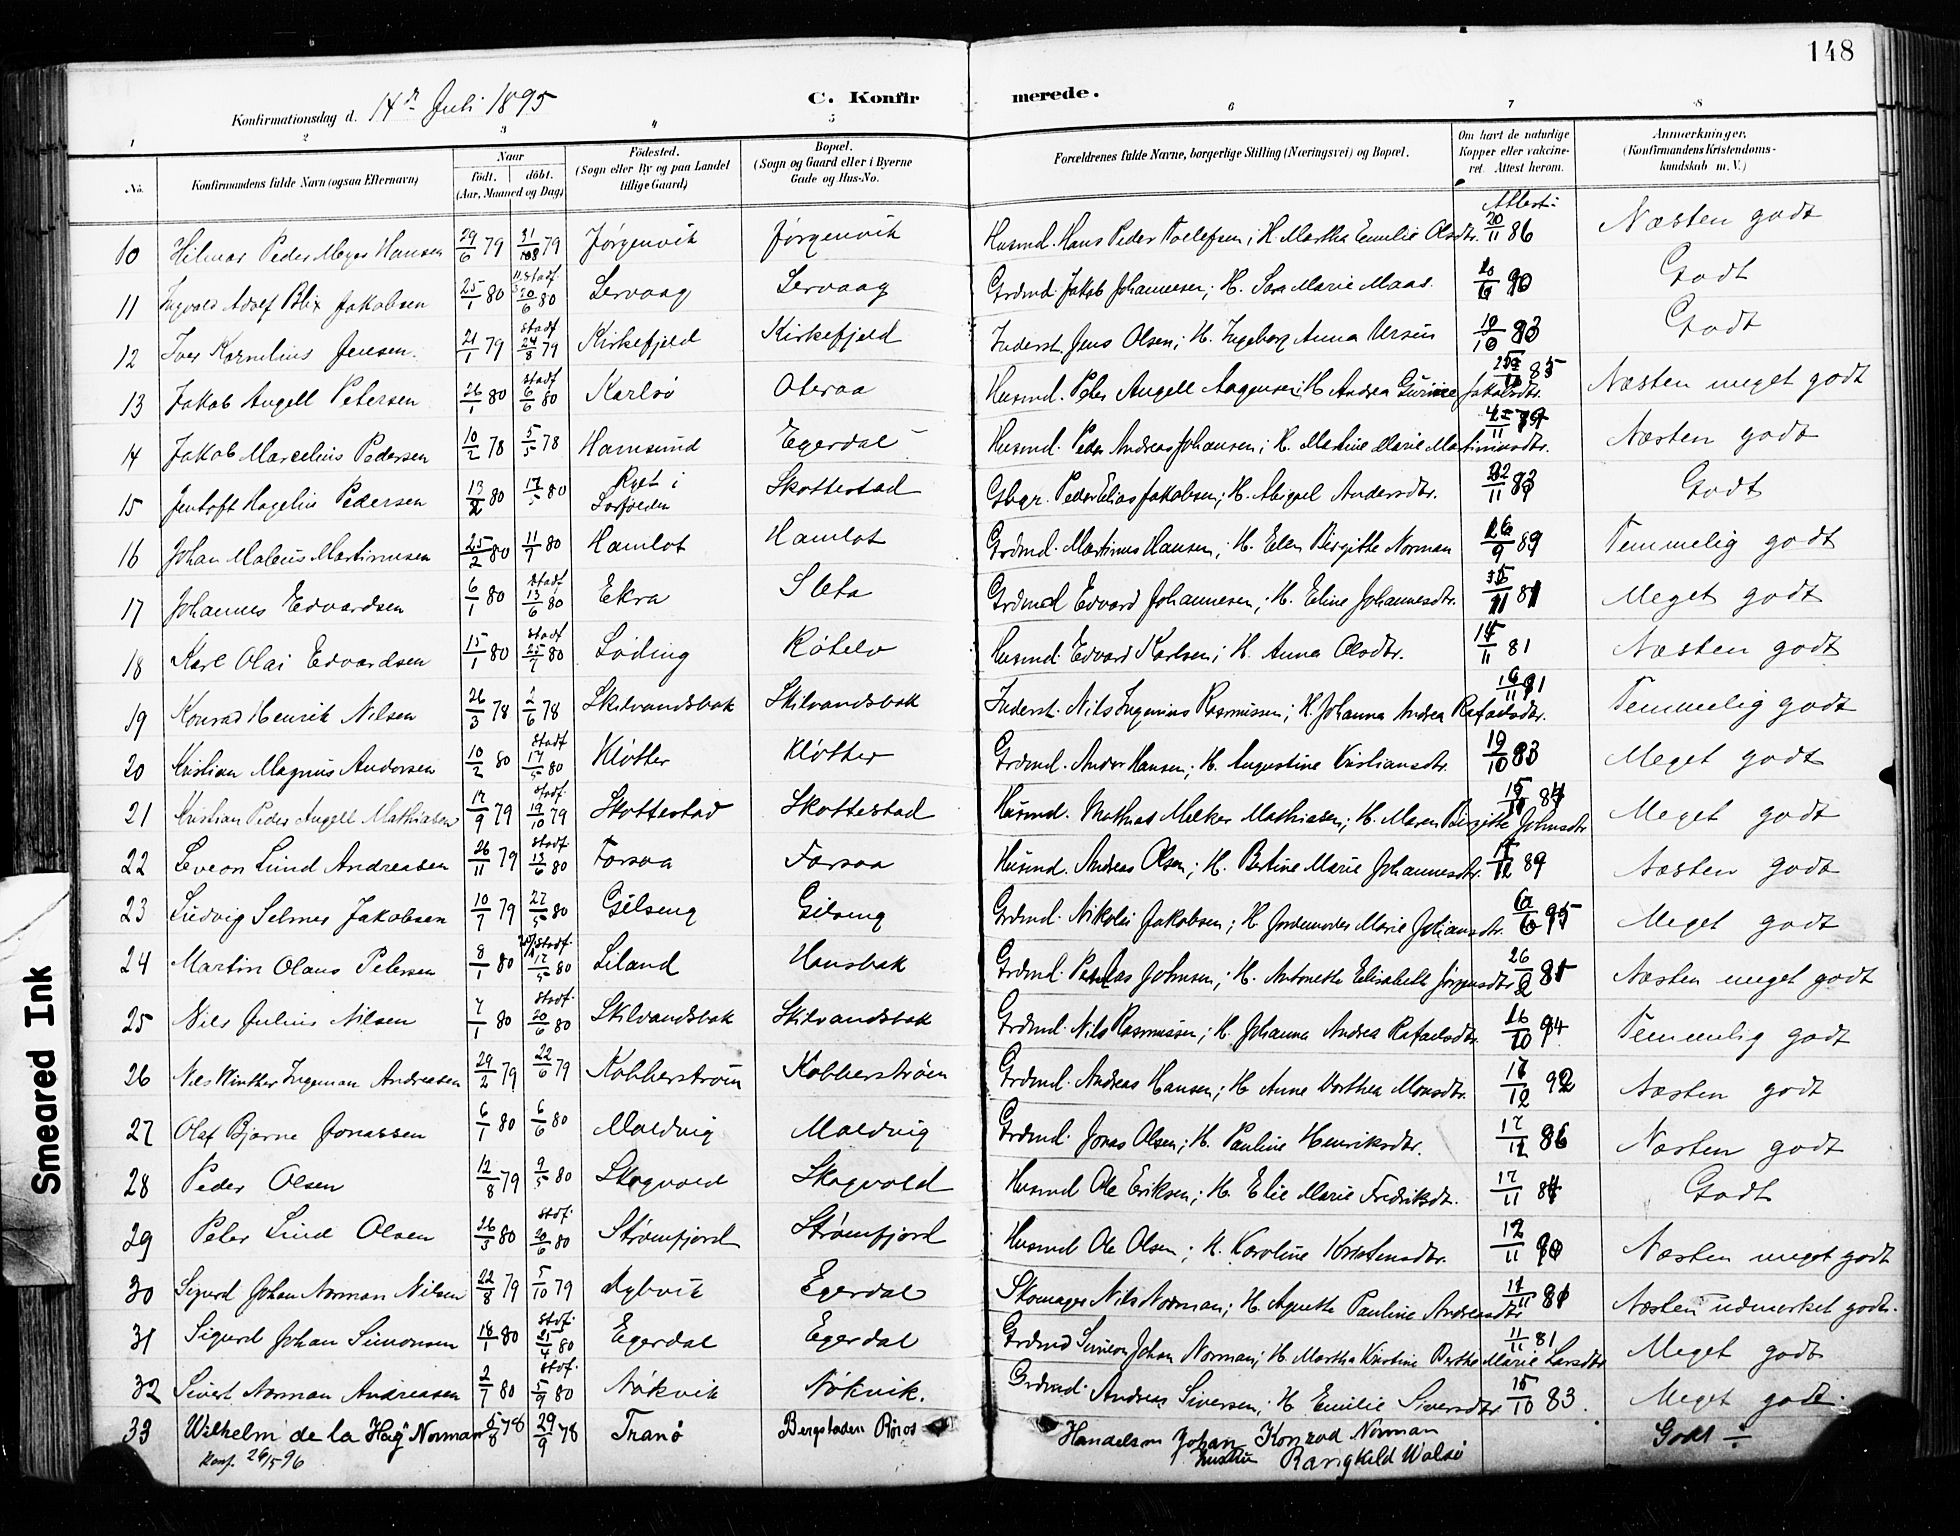 148
Konfirmationsdag d. 14de Juli 1895
C. Konfirmerede.
1 2 3 4 5 6 7 8
No. Konfirmandens fulde Navn (ogsaa Efternavn) Naar födt. döbt. (Aar, Maaned og Dag) Födested. (Sogn eller By og paa Landet tillige Gaard) Bopæl. (Sogn og Gaard eller i Byerne Gade og Hus-No.) Forældrenes fulde Navne, borgerlige Stilling (Næringsvei) og Bopæl. Om havt de naturlige Kopper eller vaccineret. Attest herom. Anmærkninger. (Konfirmandens Kristendomskundskab m. V.)
Attest:
10 Hilmar Peder Meyer Hansen 29/6 79 31/8 79 Jørgenvik Jørgenvik Husmd. Hans Peder Tollefsen; H. Martha Emilie Olsdtr. 20/11 86 Næsten godt
11 Ingvald Adolf Blix Jakobsen 25/1 80 stadf 20/6 80 Lervaag Lervaag Grdmd. Jakob Johannesen; H. Sara Marie Maas. 90 Godt
12 Iver Kornelius Jensen. 21/1 79 stadf 24/8 79 Kirkefjeld Kirkefjeld Inderst. Jens Olsen; H. Ingeborg Anna Ursin 19/10 83 Godt
13 Jakob Angell Petersen 26/1 80 stadf 6/6 80 Karlsö Oteraa Husmd. Peter Angell Aagensen; H. Andrea Gurine Jakobsdtr. 85 Næsten meget godt
14 Jakob Marcelius Pedersen 10/2 78 5/5 78 Hamsund Egerdal Husmd. Peder Andreas Johansen; H. Martine Marie Martinusdtr. 79 Næsten godt
15 Jentoft Hagelin Pedersen 13/2 80 17/5 80 Ryet i Sørfjorden Skottestad Gbgr. Peder Elias Jakobsen; H. Abigael Andersdtr. 22/11 Godt
16 Johan Maleus Martinusen 25/2 80 11/7 80 Hamlot Hamlot Grdmd. Martinus Hansen; H. Elen Birgitte Norman 26/9 89 Temmelig godt
17 Johannes Edvardsen 6/1 80 stadf 13/6 80 Ekra Sleta Grdmd Edvard Johannesen; H. Eline Johannesdtr. 81 Meget godt
18 Karl Olai Edvardsen 15/1 80 stadf 25/7 80 Løding Røtelv Husmd. Edvard Karlsen; H. Anna Olsdtr. 14/11 81 Næsten godt
19 Konrad Henrik Nilsen 26/3 78 2/6 78 Skilvandsbak Skilvandsbak Inderst. Nils Ingenius Rasmussen; H. Johanna Andrea Rafaelsdtr. 91 Temmelig godt
20 Kristian Magnus Andersen 10/2 80 stadf 17/5 80 Kløtter Kløtter Grdmd. Anders Hansen; H. Augustine Kristiansdtr. 19/10 83 Meget godt
21 Kristian Peder Angell Mathiasen 17/9 79 stadf 19/10 79 Skottestad Skottestad Husmd. Mathias Melker Mathiasen; H. Maren Birgitte Johnsdtr 84 Meget godt
22 Leveon Lund Andreasen 26/11 79 stadf 13/6 80 Forsaa Forsaa Husmd. Andreas Olsen; H. Bertine Marie Johannesdtr. 89 Næsten godt
23 Ludvig Selmer Jakobsen 10/7 79 27/5 80 Gilseng Gilseng Grdmd. Nikolai Jakobsen; H. Jordemoder Marie Johansdtr. 95 Meget godt
24 Martin Olaus Petersen 8/1 80 stadf. 17/5 80 Liland Hansbak Grdmd. Johnsen; H. Antonette Elisabeth Jørgensdtr 26/2 85 Næsten meget godt
25 Nils Julius Nilsen 7/1 80 stadf. 20/6 80 Skilvandsbak Skilvandsbak Grdmd. Nils Rasmussen; H. Johanna Andrea Rafaelsdtr. 16/10 94 Temmelig godt
26 Nils Winther Ingeman Andreasen 29/2 79 22/6 79 Kobberstrøm Kobberstrøm Grdmd. Andreas Hansen; H. Anne Dorthea Monsdtr. 17/12 92 Næsten godt
27 Olaf Bjarne Jonassen 6/1 80 6/6 80 Moldvig Moldvig Grdmd. Jonas Olsen; H. Pauline Henriksdtr. 17/12 86 Næsten godt
28 Peder Olsen 12/8 79 9/5 80 Skogvold Skogvold Husmd Ole Eriksen; H. Elie Marie Fredriksdtr. 17/11 84 Godt
29 Peter Lind Olsen 26/3 80 stdf. 20/6 80 Strømfjord Strømfjord Husmd Ole Olsen; H. Karoline Kristensdtr. 12/11 90 Næsten meget godt
30 Sigurd Johan Norman Nilsen 22/8 79 5/10 79 Nybvik Egerdal Skomager Nils Norman; H. Agnethe Pauline Andreasdtr 81 Næsten udmerket godt.
31 Sigurd Johan Simonsen 18/1 80 stdf. 21/4 80 Egerdal Egerdal Grdmd Simeon Johan Norman; H. Martha Kristine Berthe Marie Larsdtr 11/11 81 Meget godt
32 Sivert Norman Andreasen 2/7 80 stdf. 5/9 80 Nökvik Nökvik. Grdmd. Andreas Siversen; H. Emilie Siversdtr 15/10 83. Meget godt.
33 Wilhelm de la Hag Norman 5/8 78 29/9 78 Tranö Bergstaden Röros Handelsm Johan Konrad Norman
konf. 26/5 96 hustru Ranghild Walsö Godt ÷
Smeared Ink